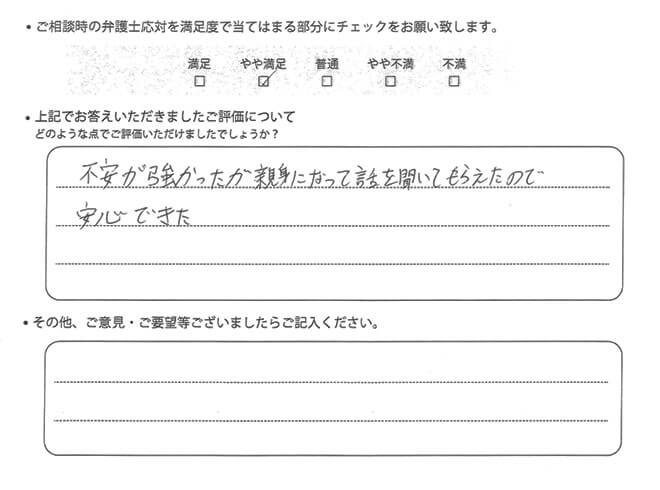 ・ご相談時の弁護士応対を満足度で当てはまる部分にチェックをお願い致します。
満足 やや満足 普通 やや不満 不満
・上記でお答えいただきましたご評価について
どのような点でご評価いただけましたでしょうか？
不安が強かったが親身になって話を聞いてもらえたので
安心できた
・その他、ご意見・ご要望等ございましたらご記入ください。